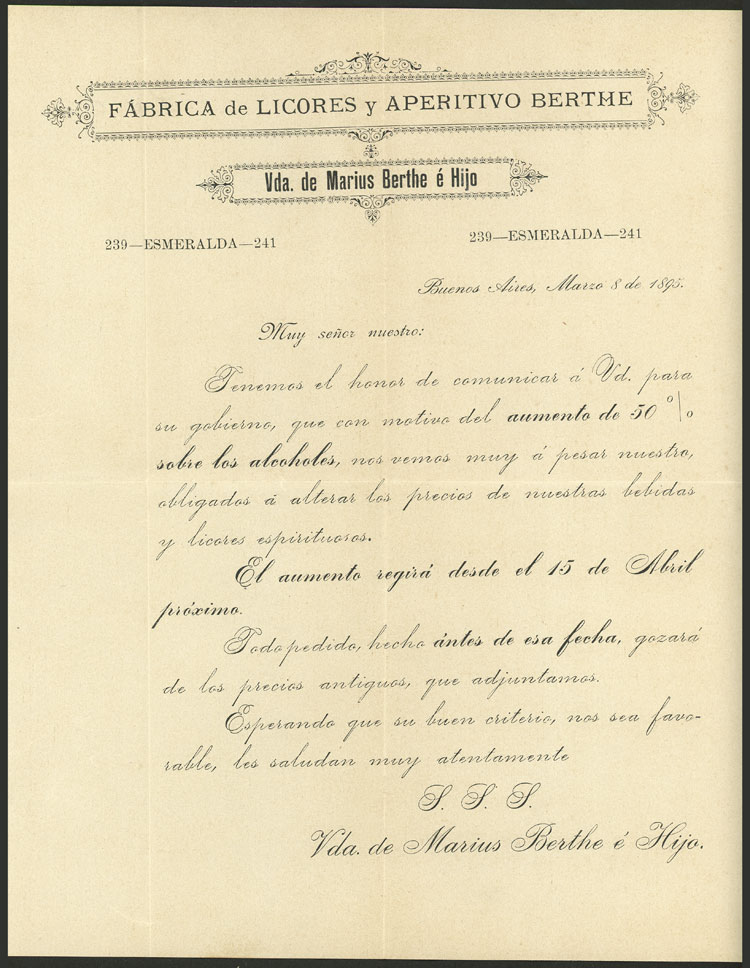 FÁBRICA de LICORES y APERITIVO BERTHE
Vda. de Marius Berthe é Hijo
239—ESMERALDA—241 239—ESMERALDA—241
Buenos Aires, Marzo 8 de 1895.
Muy señor nuestro:
Tenemos el honor de comunicar á Vd. para
su gobierno, que con motivo del aumento de 50 %
sobre los alcoholes, nos vemos muy á pesar nuestro,
obligados á alterar los precios de nuestras bebidas
y licores espirituosos.
El aumento regirá desde el 15 de Abril
próximo.
Todo pedido, hecho ántes de esa fecha, gozará
de los precios antiguos, que adjuntamos.
Esperando que su buen criterio, nos sea favo-
rable, les saludan muy atentamente
S. S. S.
Vda. de Marius Berthe é Hijo.